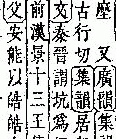 又廣韻集韻
古行切集韻居
文秦晉謂坑爲
前漢景十三王傳
父安能以皓皓